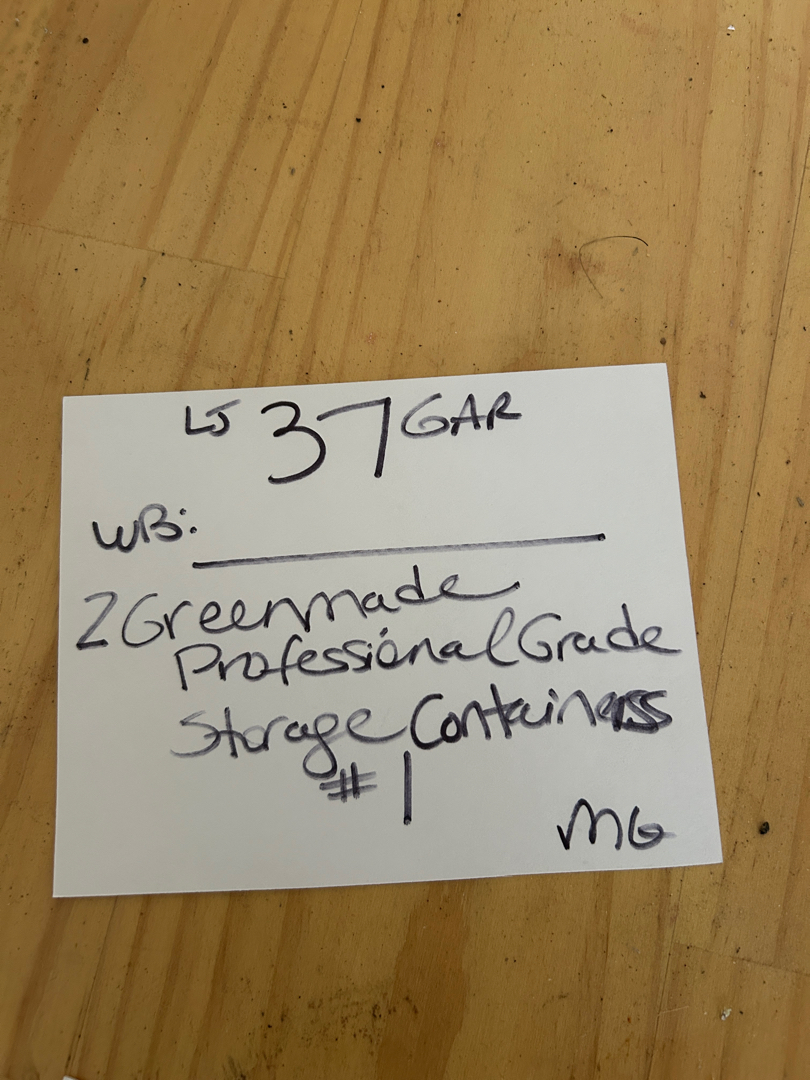 LJ 37 GAR
WB:
2 Greenmade
Professional Grade
Storage Containers
# 1
MG